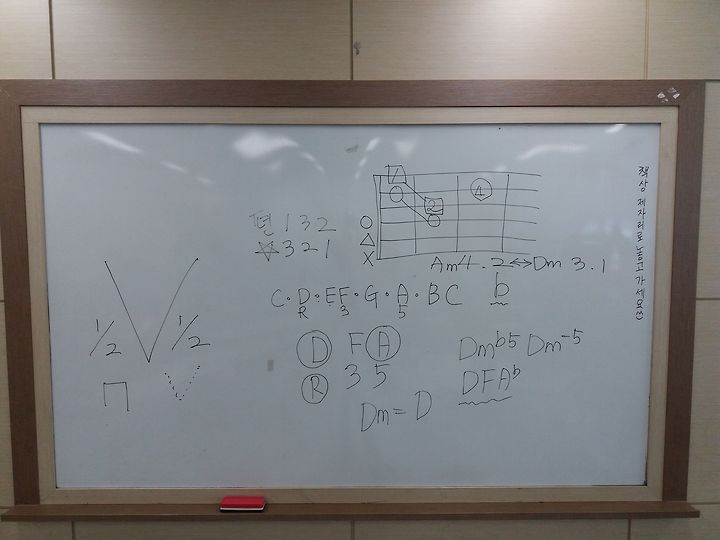 편 1 3 2
☆ 3 2 1
1
2
4
○
△
X
Am 4 . 2 ↔ Dm 3 . 1
C · D · E F · G · A · B C b
R 3 5
Ⓓ F Ⓐ
Ⓡ 3 5
Dm = D
Dm b5 Dm -5
D F A b
1/2 V 1/2
책상 제자리로 놓고 가세요